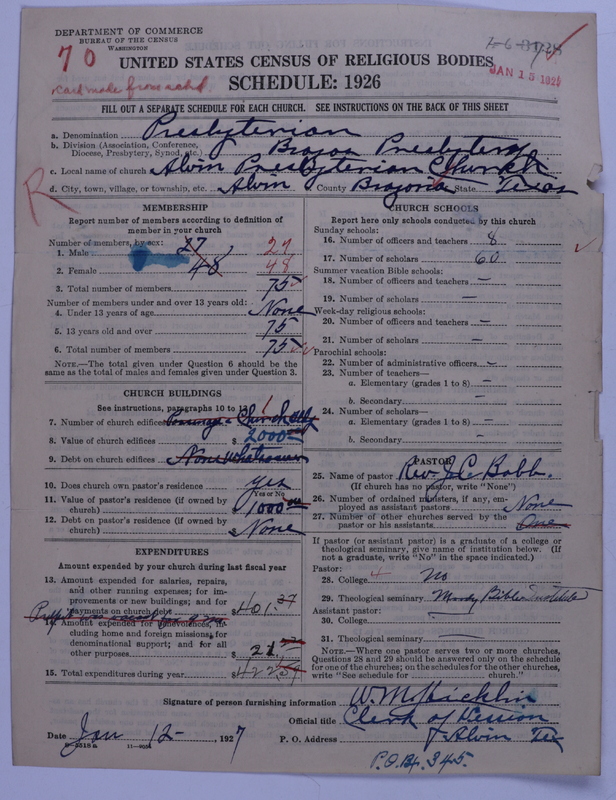 DEPARTMENT OF COMMERCE
BUREAU OF THE CENSUS
WASHINGTON
70
JAN 15 1927
UNITED STATES CENSUS OF RELIGIOUS BODIES
SCHEDULE: 1926
FILL OUT A SEPARATE SCHEDULE FOR EACH CHURCH. SEE INSTRUCTIONS ON THE BACK OF THIS SHEET
a. Denomination Presbyterian
b. Division (Association, Conference, Diocese, Presbytery, Synod, etc.) Brazos Presbytery
c. Local name of church Alvin Presbyterian Church
d. City, town, village, or township, etc. Alvin County Brazoria State Texas
R
MEMBERSHIP
Report number of members according to definition of member in your church
Number of members, by sex:
1. Male 27 27
2. Female 48 48
3. Total number of members 75
Number of members under and over 13 years old:
4. Under 13 years of age None
5. 13 years old and over 75
6. Total number of members 75
NOTE.—The total given under Question 6 should be the same as the total of males and females given under Question 3.
CHURCH BUILDINGS
See instructions, paragraphs 10 to 13
7. Number of church edifices 1 Church
8. Value of church edifices $ 2000
9. Debt on church edifices None whatsoever
10. Does church own pastor's residence yes
Yes or No
11. Value of pastor's residence (if owned by church) $ 1000
12. Debt on pastor's residence (if owned by church) $ None
EXPENDITURES
Amount expended by your church during last fiscal year
13. Amount expended for salaries, repairs, and other running expenses; for improvements or new buildings; and for payments on church debt $ 401.37
Pulpit was vacant
14. Amount expended for benevolences, including home and foreign missions, for denominational support; and for all other purposes $ 21.
15. Total expenditures during year $ 422
CHURCH SCHOOLS
Report here only schools conducted by this church
Sunday schools:
16. Number of officers and teachers 8
17. Number of scholars 60
Summer vacation Bible schools:
18. Number of officers and teachers —
19. Number of scholars —
Week-day religious schools:
20. Number of officers and teachers —
21. Number of scholars —
Parochial schools:
22. Number of administrative officers —
23. Number of teachers—
a. Elementary (grades 1 to 8) —
b. Secondary —
24. Number of scholars—
a. Elementary (grades 1 to 8) —
b. Secondary —
PASTOR
25. Name of pastor Rev. J. C. Bobb.
(If church has no pastor, write "None")
26. Number of ordained ministers, if any, employed as assistant pastors None
27. Number of other churches served by the pastor or his assistants One
If pastor (or assistant pastor) is a graduate of a college or theological seminary, give name of institution below. (If not a graduate, write "No" in the space indicated.)
Pastor:
28. College No
29. Theological seminary Moody Bible Institute
Assistant pastor:
30. College —
31. Theological seminary —
NOTE.—Where one pastor serves two or more churches, Questions 28 and 29 should be answered only on the schedule for one of the churches; on the schedules for the other churches, write "See schedule for church."
Signature of person furnishing information W. M. Sticklin
Official title Clerk of Session
Date Jan 12- 1927 P. O. Address Alvin Tex
8-3518a 11-9051
P.O. Bx. 345.